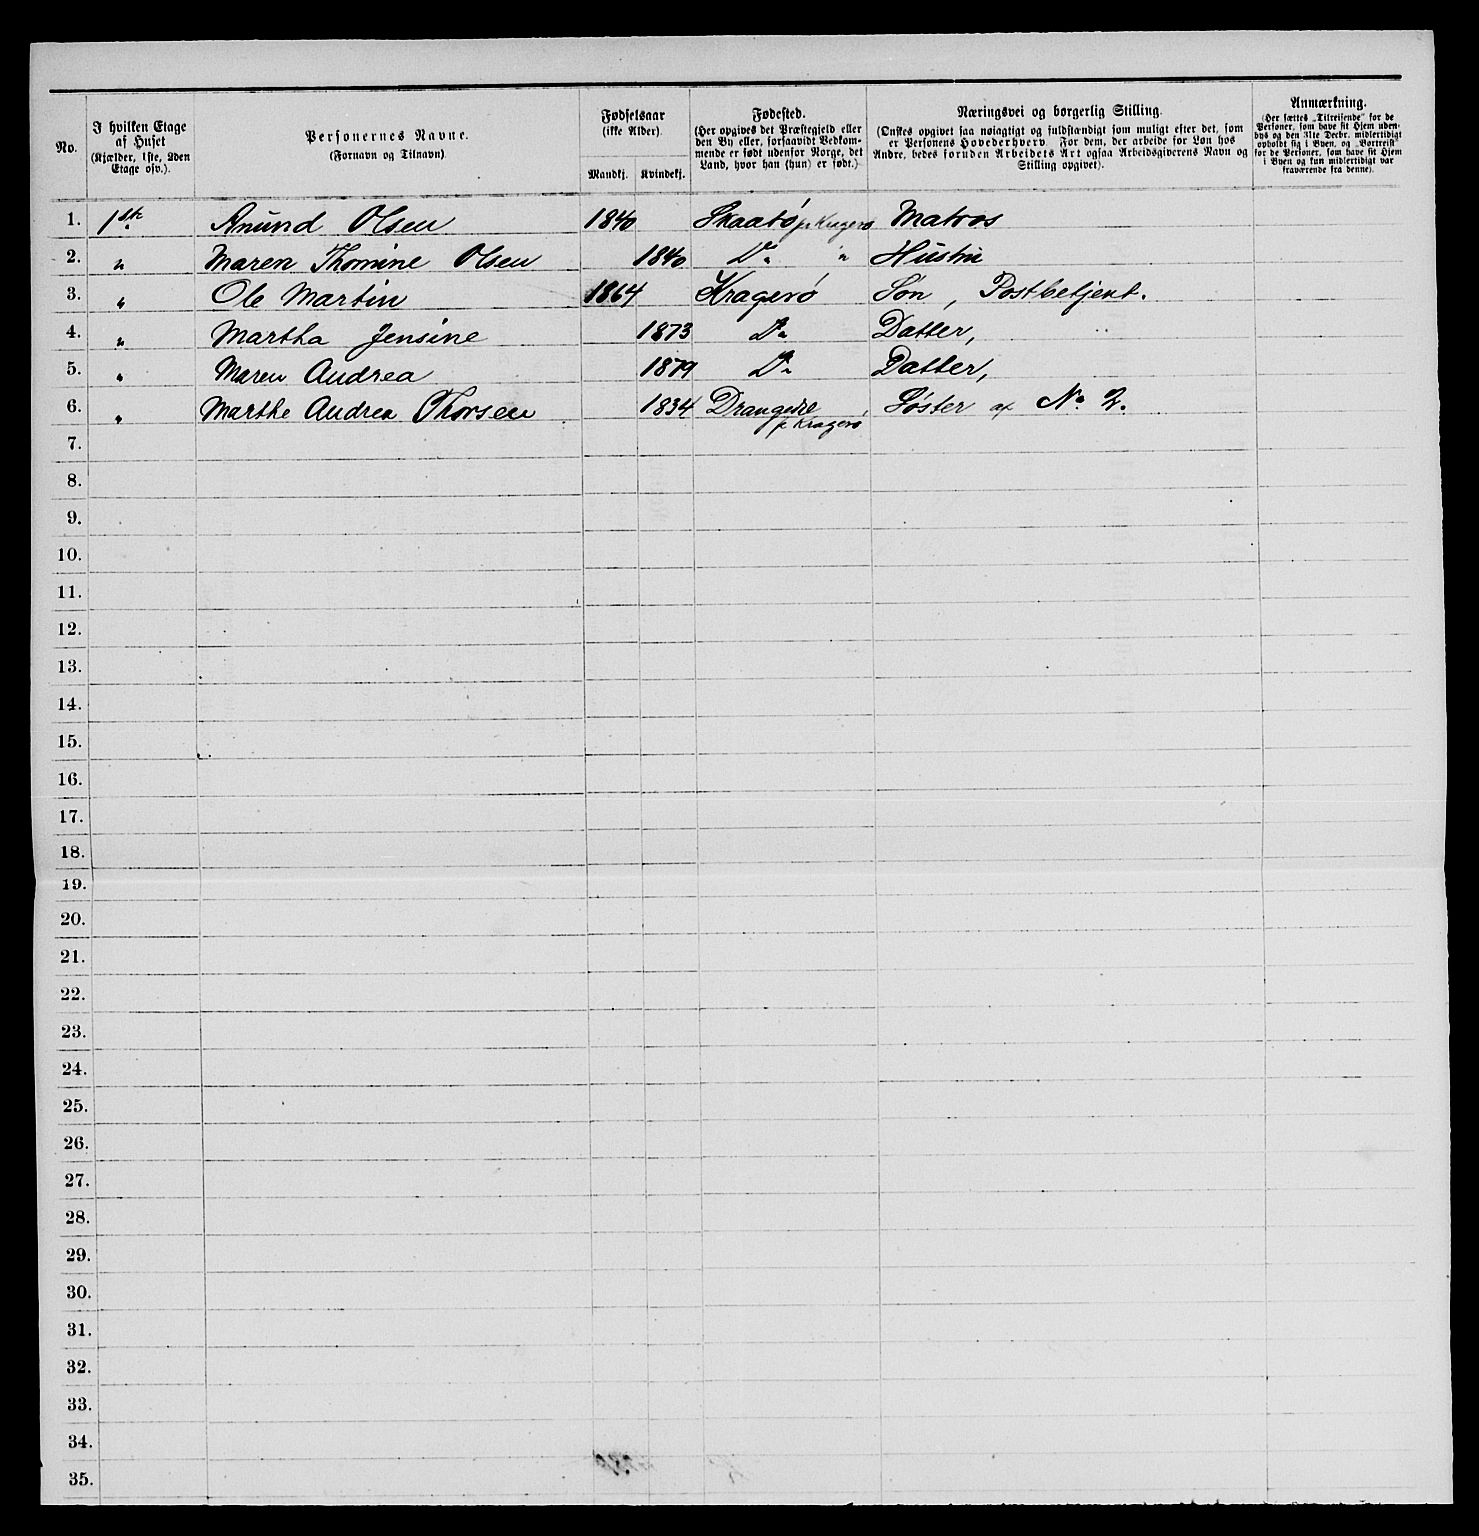 No.
I hvilken Etage af Huset (Kjælder, 1ste, 2den Etage osv.).
Personernes Navne.
(Fornavn og Tilnavn)
Fødselsaar
(ikke Alder).
Mandkj. Kvindekj.
Fødested.
(Her opgives det Præstegjeld eller den By eller, forsaavidt Vedkommende er født udenfor Norge, det Land, hvor han (hun) er født.)
Næringsvei og borgerlig Stilling.
(Ønskes opgivet saa nøiagtigt og fuldstændigt som muligt efter det, som er Personens Hovederhverv. For dem, der arbeide for Løn hos Andre, bedes foruden Arbeidets Art ogsaa Arbeidsgiverens Navn og Stilling opgivet).
Anmærkning.
(Her sættes „Tilreisende“ for de Personer, som have sit Hjem udenbys og den 31te Decbr. midlertidigt opholdt sig i Byen, og „Bortreist“ for de Personer, som have sit Hjem i Byen og kun midlertidigt var fraværende fra denne).
1. 1ste Anund Olsen 1840 Skaatø p. Kragerø Matros
2. " Maren Thomine Olsen 1840 Do " Hustru
3. " Ole Martin 1864 Kragerø Søn, Postbetjent.
4. " Martha Jensine 1873 Do Datter,
5. " Maren Andrea 1879 Do Datter,
6. " Marthe Andrea Thorsen 1834 Drangedal Søster af No 2.
p Kragerø
7.
8.
9.
10.
11.
12.
13.
14.
15.
16.
17.
18.
19.
20.
21.
22.
23.
24.
25.
26.
27.
28.
29.
30.
31.
32.
33.
34.
35.